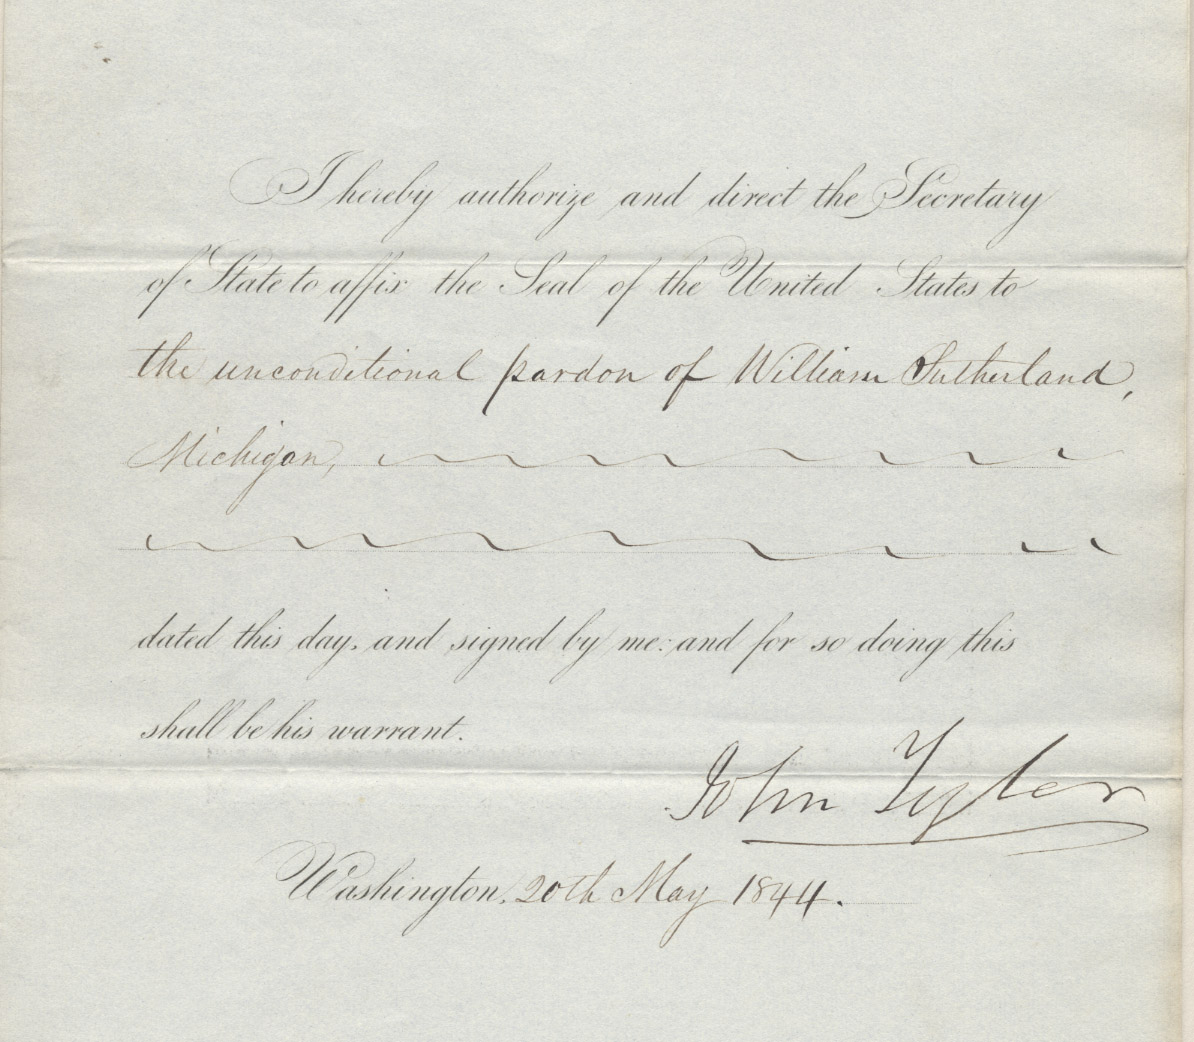 I hereby authorize and direct the Secretary
of State to affix the Seal of the United States to
the unconditional pardon of William Sutherland,
Michigan,
dated this day, and signed by me: and for so doing this
shall be his warrant.
John Tyler
Washington, 20th May 1844.